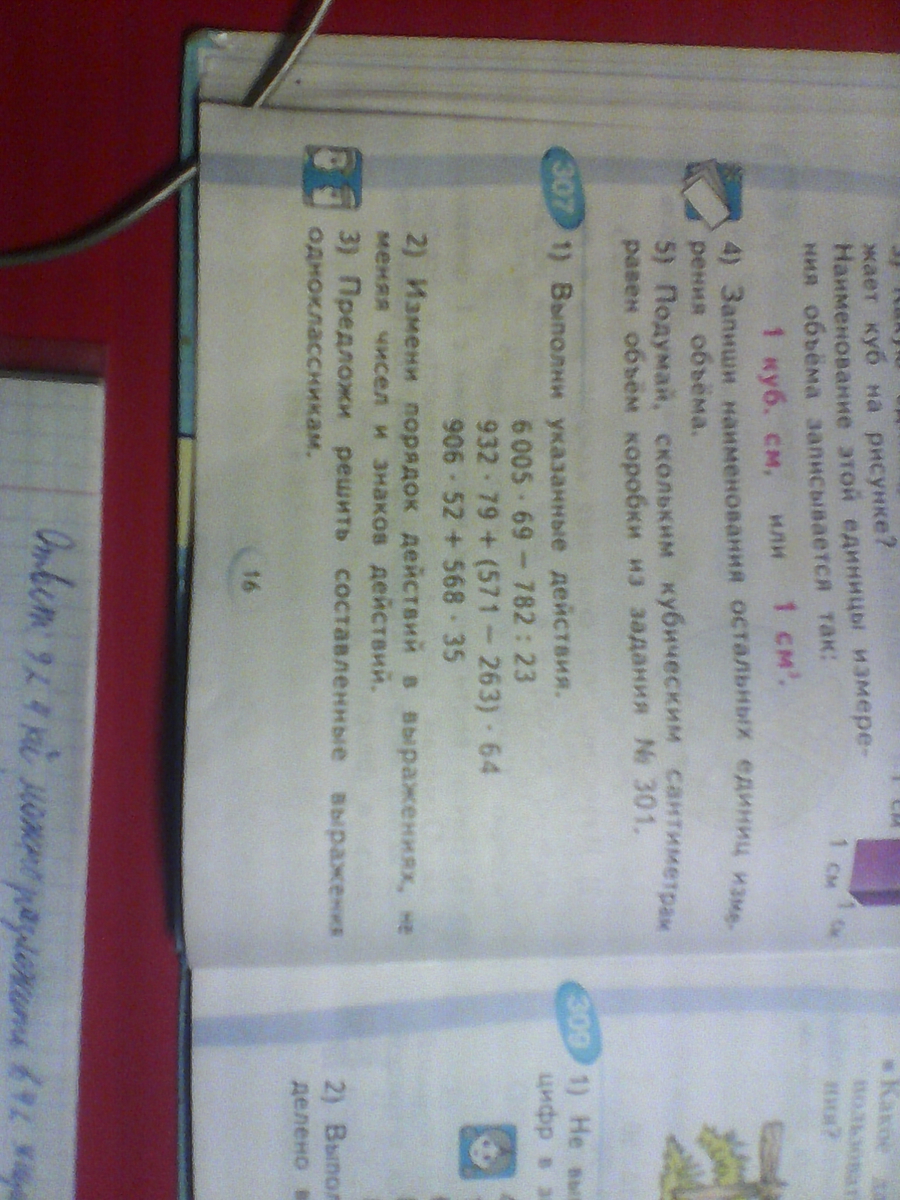 жает куб на рисунке?
Наименование этой единицы измере-
ния объёма записывается так:
1 куб. см, или 1 см³.
1 см
1 см
4) Запиши наименования остальных единиц изме-
рения объёма.
5) Подумай, скольким кубическим сантиметрам
равен объём коробки из задания № 301.
307 1) Выполни указанные действия.
6 005 · 69 − 782 : 23
932 · 79 + (571 − 263) · 64
906 · 52 + 568 · 35
2) Измени порядок действий в выражениях, не
меняя чисел и знаков действий.
3) Предложи решить составленные выражения
одноклассникам.
16
Какие
пользова
ния?
309 1) Не вы
цифр в з
2) Выпол
делено в
Ответ: 92 4 кг можно разложить в